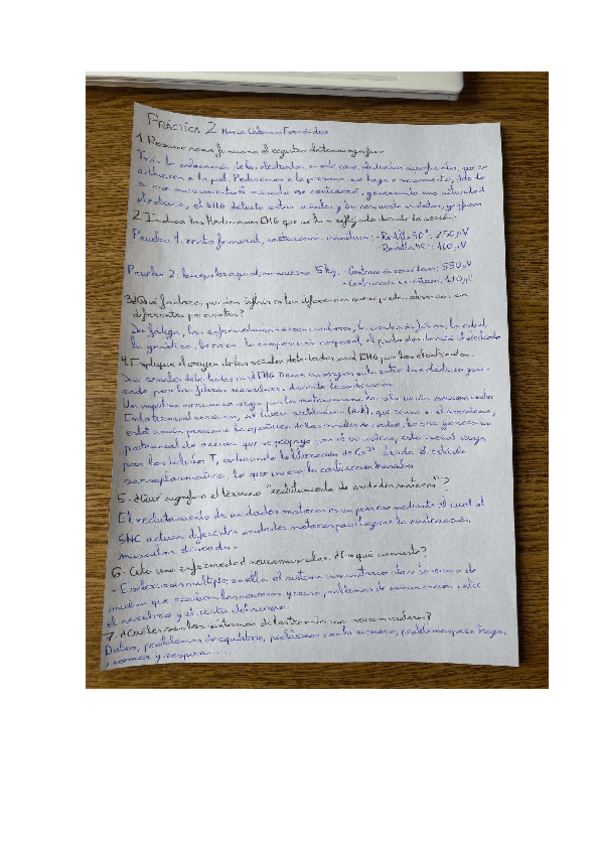 PRÁCTICA 2 María Fernández
1. Resume como funciona el registro electromiográfico
Tras la colocación de los electrodos, en este caso, electrodos superficiales, que se
adhieren a la piel. Pedimos a la persona que haga movimiento, debido
a ese movimiento el músculo se contraerá, generando una actividad
eléctrica, el EMG detecta estas señales y las
2. Indica los EMG que se han reflejado durante la sesión.
Prueba 1: recto femoral, : - Rodilla 90°: 250 µV
- Rodilla 45°: 160 µV
Prueba 2: bíceps braquial, 5 kg. - Contracción concéntrica: 550 µV
- Contracción excéntrica: µV
3. ¿Qué factores pueden influir en las diferencias que se pueden observar en
diferentes pacientes?
La fatiga, las enfermedades neuromusculares, la condición física, la edad,
la genética, la composición corporal, el electrodo
4. Explique el origen de las señales detectadas en el EMG por los electrodos.
Las señales detectadas en el EMG tienen su origen en la actividad eléctrica gene-
rada por las fibras musculares durante la contracción.
Un impulso nervioso viaja por la motoneurona hasta la unión neuromuscular.
En la terminal nerviosa, se libera acetilcolina (Ach), que se une a el
esta unión provoca la apertura de los canales de sodio, lo que genera un
potencial de acción que se propaga por el sarcolema, esta señal viaja
por los túbulos T, activando la liberación de Ca²⁺ desde el retículo
sarcoplasmático, lo que inicia la contracción muscular
5. ¿Qué significa el término "reclutamiento de unidades motoras"?
El reclutamiento de unidades motoras es un proceso mediante el cual el
SNC activa diferentes unidades motoras para lograr la contracción
muscular deseada.
6. Cite una enfermedad neuromuscular. ¿En qué consiste?
- Esclerosis múltiple, en ella el sistema inmunitario ataca la vaina de
mielina que recubre las neuronas y causa problemas de comunicación entre
el cerebro y el resto del cuerpo
7. ¿Cuáles son los síntomas de los trastornos neuromusculares?
Dolor, problemas de equilibrio, problemas con la, problemas para tragar,